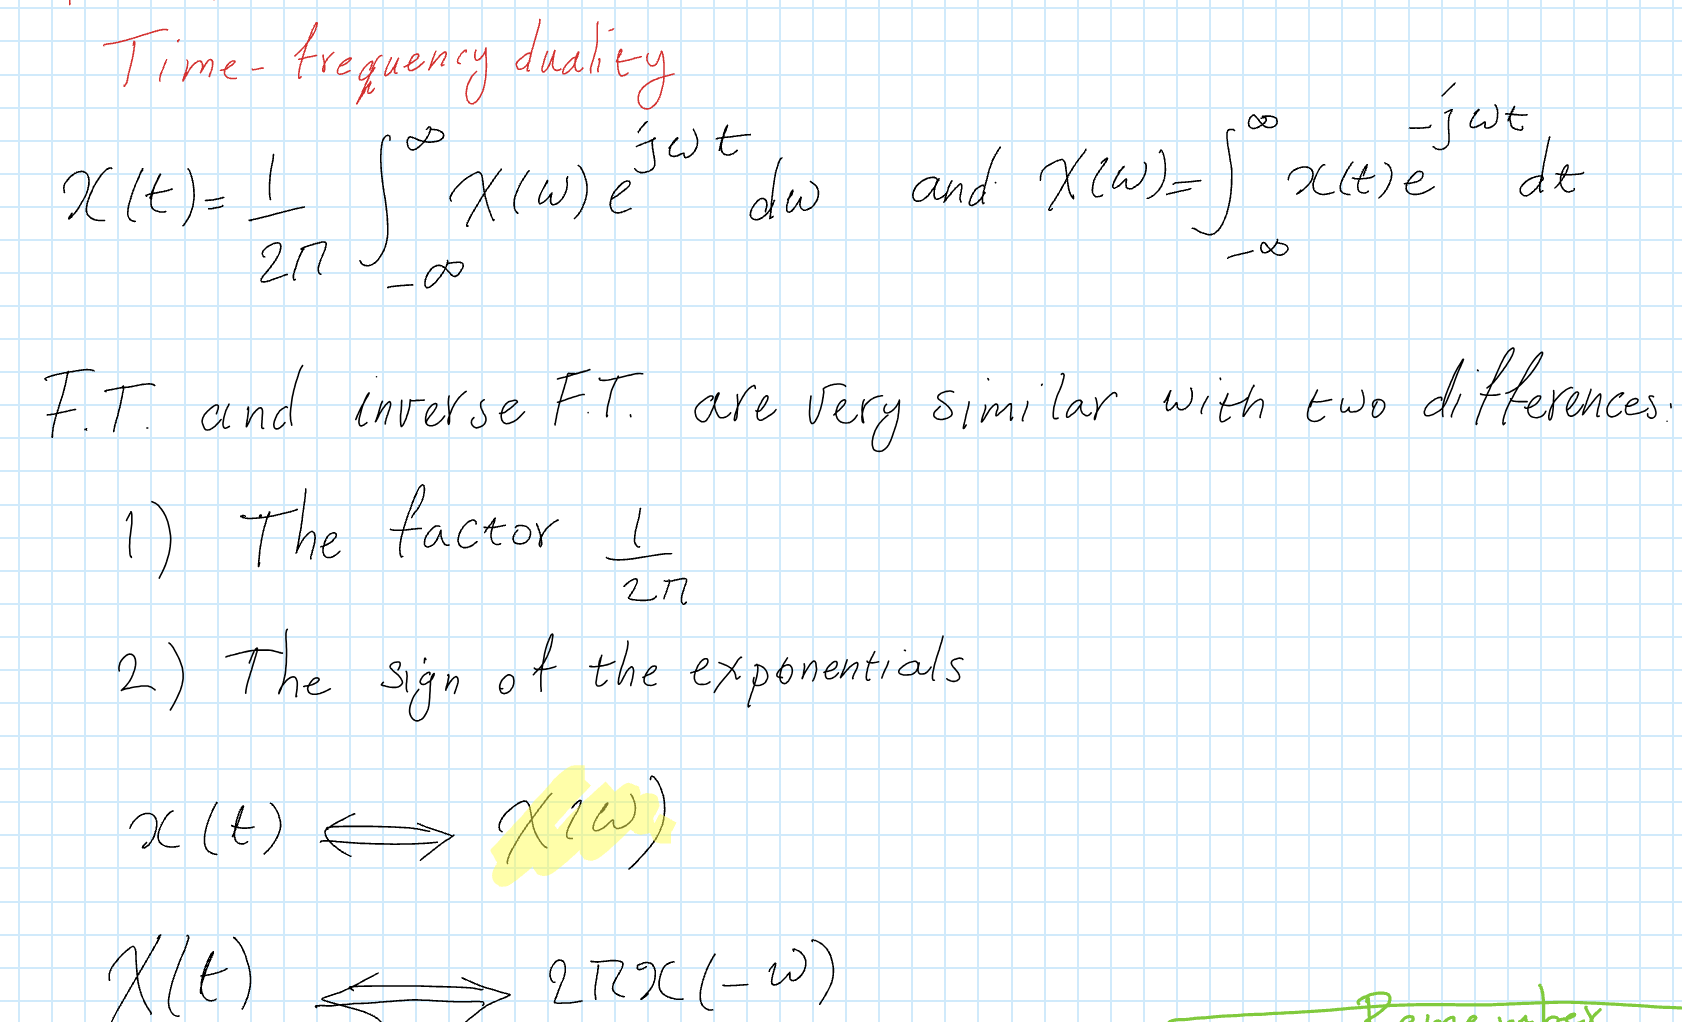 Time-frequency duality
x(t) = 1/2π ∫_{-∞}^{∞} X(ω) e^{jωt} dω and X(ω) = ∫_{-∞}^{∞} x(t) e^{-jωt} dt
F.T. and inverse F.T. are very similar with two differences:
1) The factor 1/2π
2) The sign of the exponentials
x(t) ⟺ X(ω)
X(t) ⟺ 2πx(-ω)
Remember